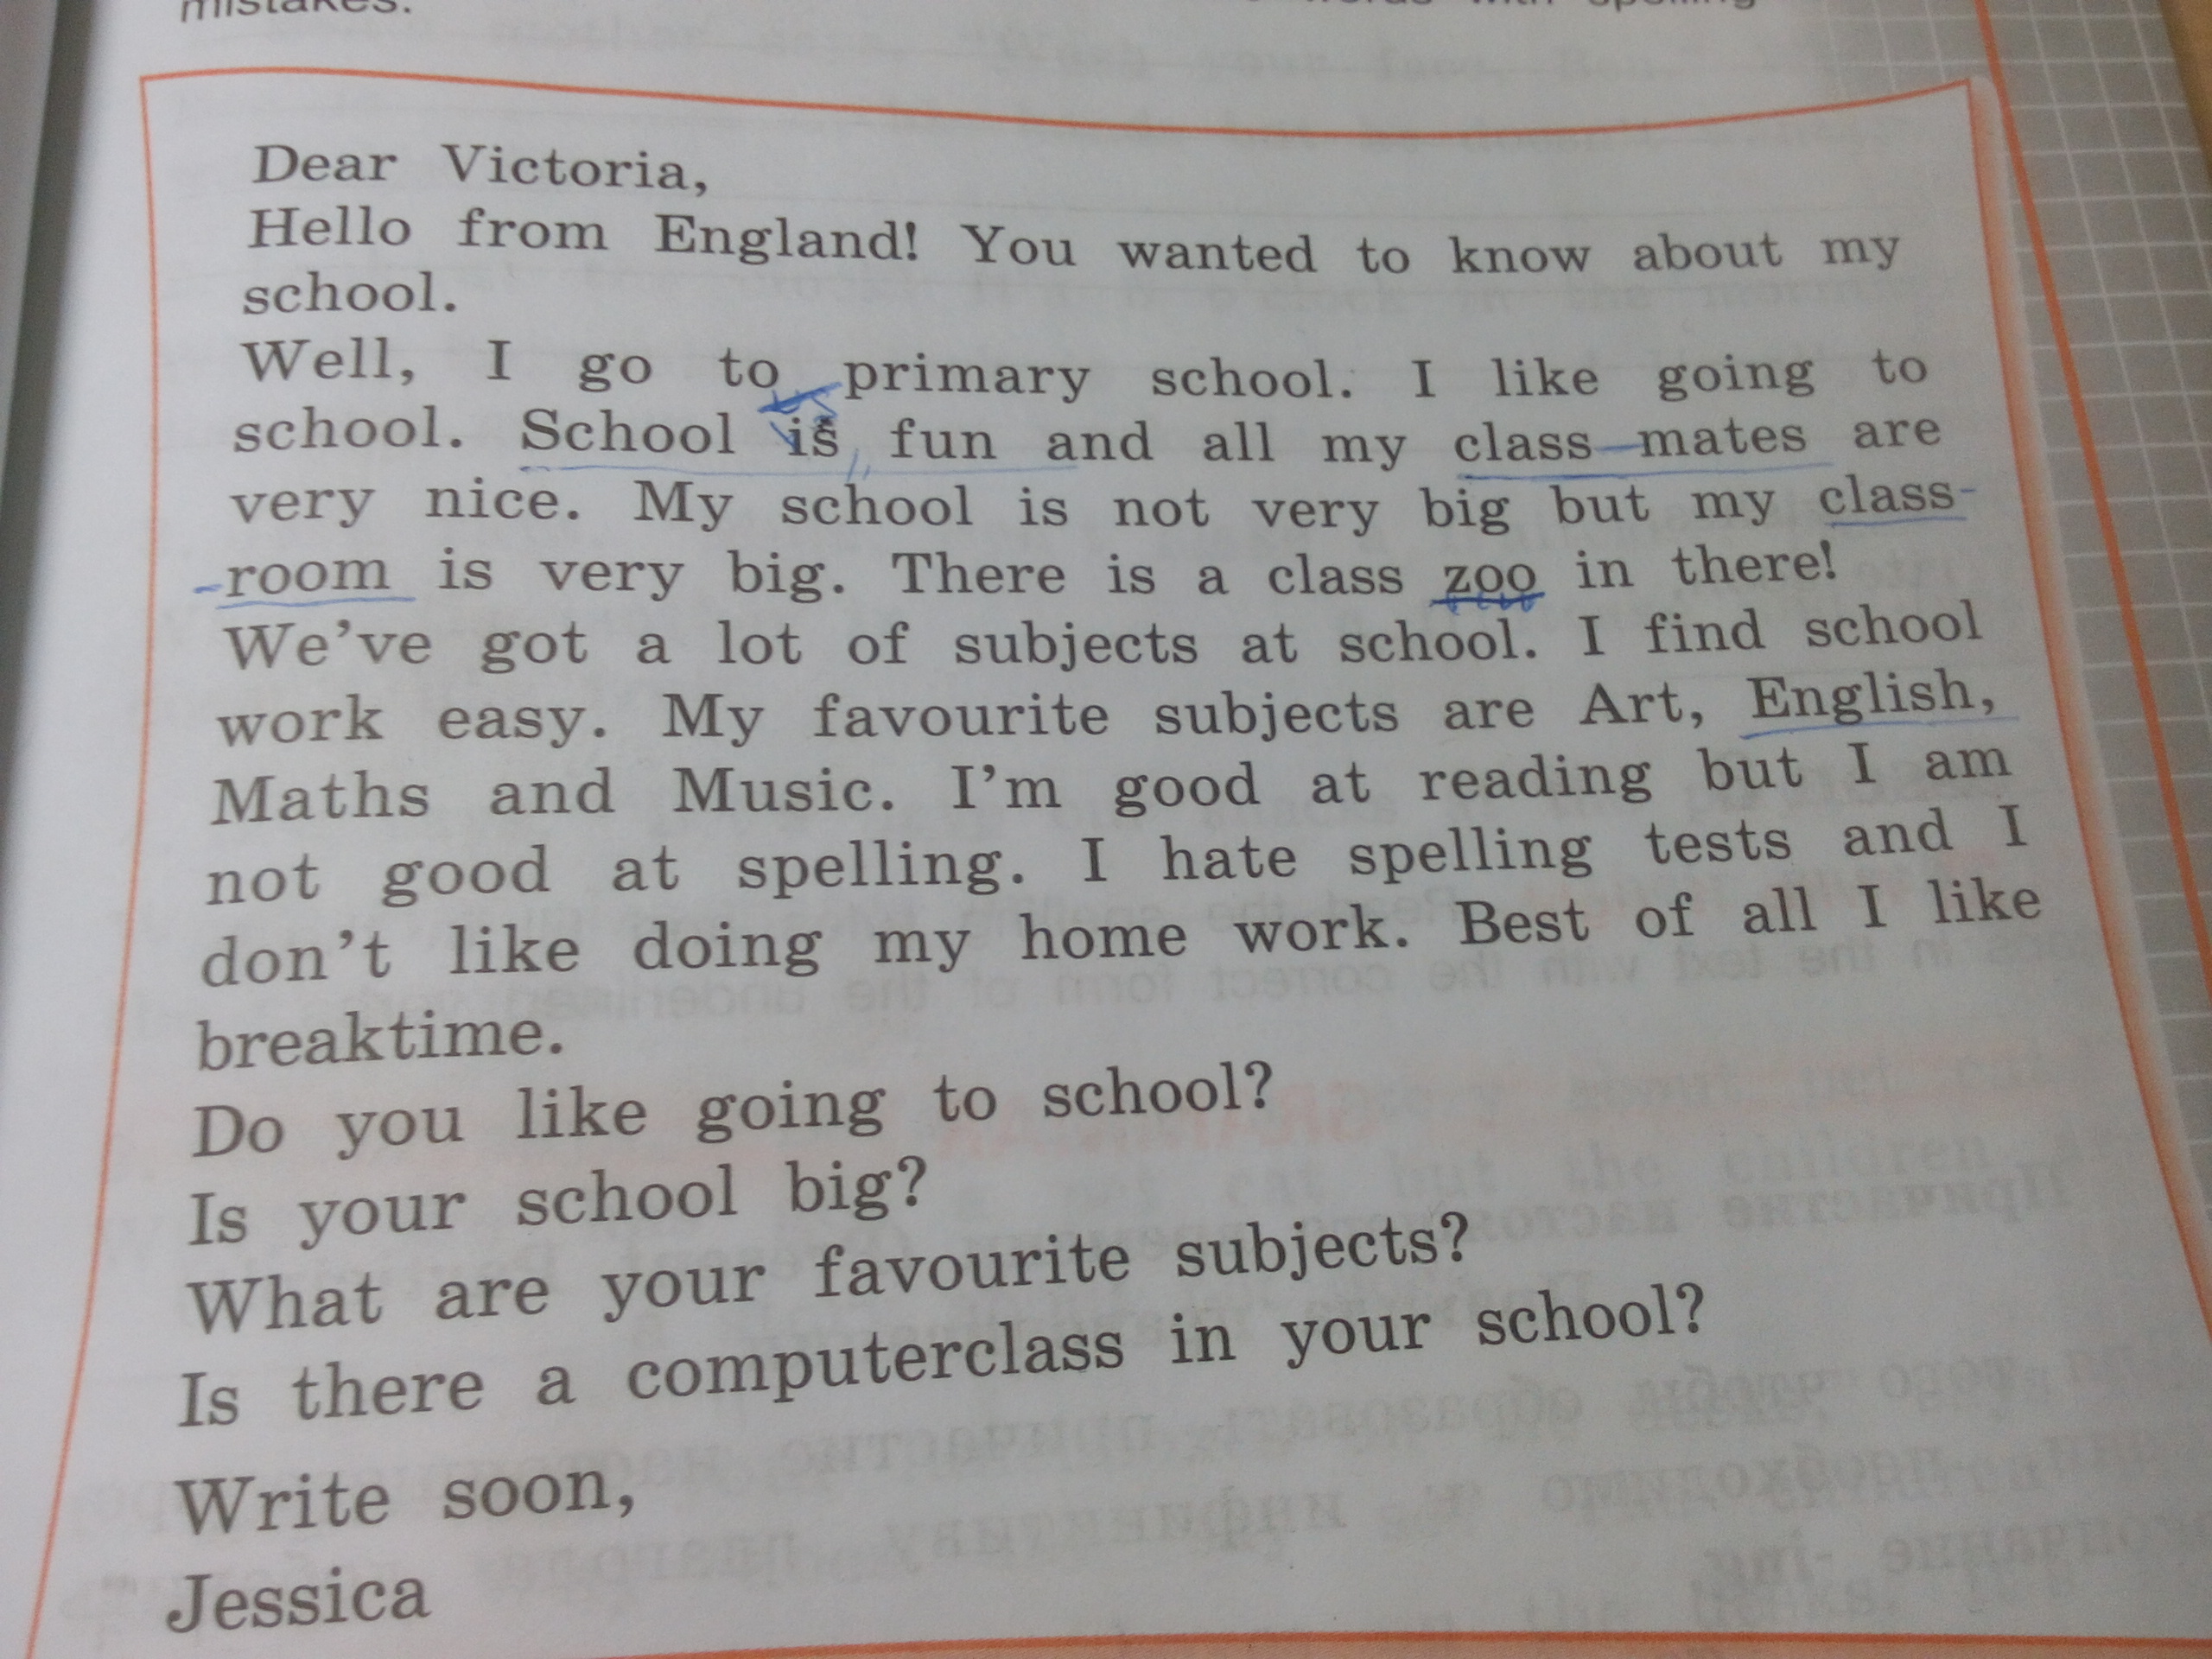 mistakes. words with spelling
Dear Victoria,
Hello from England! You wanted to know about my
school.
Well, I go to primary school. I like going to
school. School is fun and all my class mates are
very nice. My school is not very big but my class-
-room is very big. There is a class zoo in there!
We've got a lot of subjects at school. I find school
work easy. My favourite subjects are Art, English,
Maths and Music. I'm good at reading but I am
not good at spelling. I hate spelling tests and I
don't like doing my home work. Best of all I like
breaktime.
Do you like going to school?
Is your school big?
What are your favourite subjects?
Is there a computerclass in your school?
Write soon,
Jessica